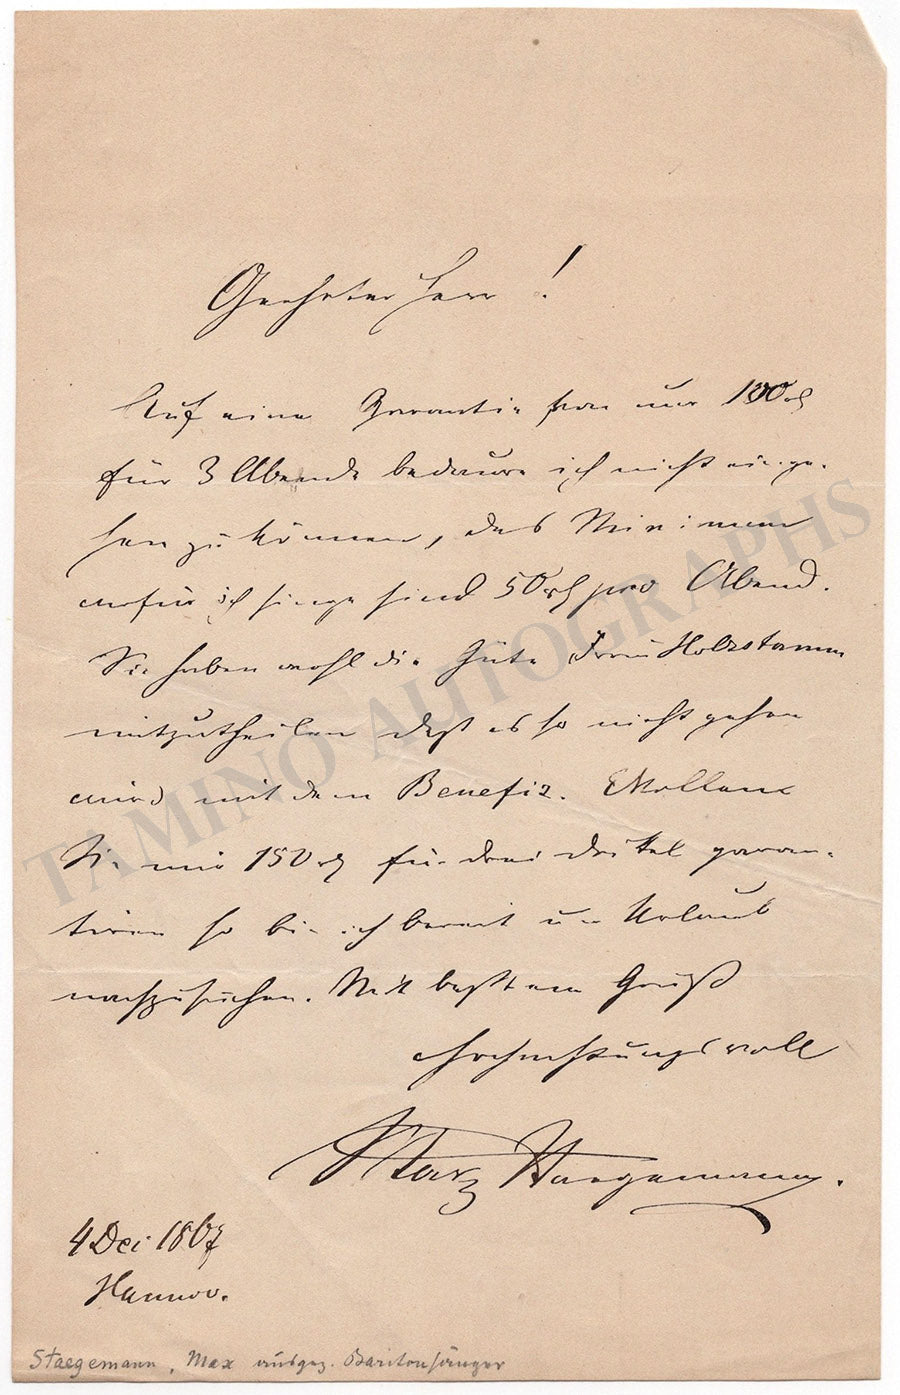 Geehrter Herr!
Auf eine Garantie von nur 100 rh
für 3 Abende bedaure ich nicht einge-
hen zu können, das Minimum
wofür ich singe sind 50 rh pro Abend.
Sie haben wohl die Güte Frau Holzstamm
mitzutheilen daß es so nicht gehen
wird mit dem Benefiz. Wollen
Sie mir 150 rh für drei garan-
tiren so bin ich bereit um Urlaub
nachzusuchen. Mit bestem Gruß
Hochachtungsvoll
Max Staegemann.
4 1867
Hannov.
Staegemann, Max ausgez. Baritonsänger
TAMINO AUTOGRAPHS